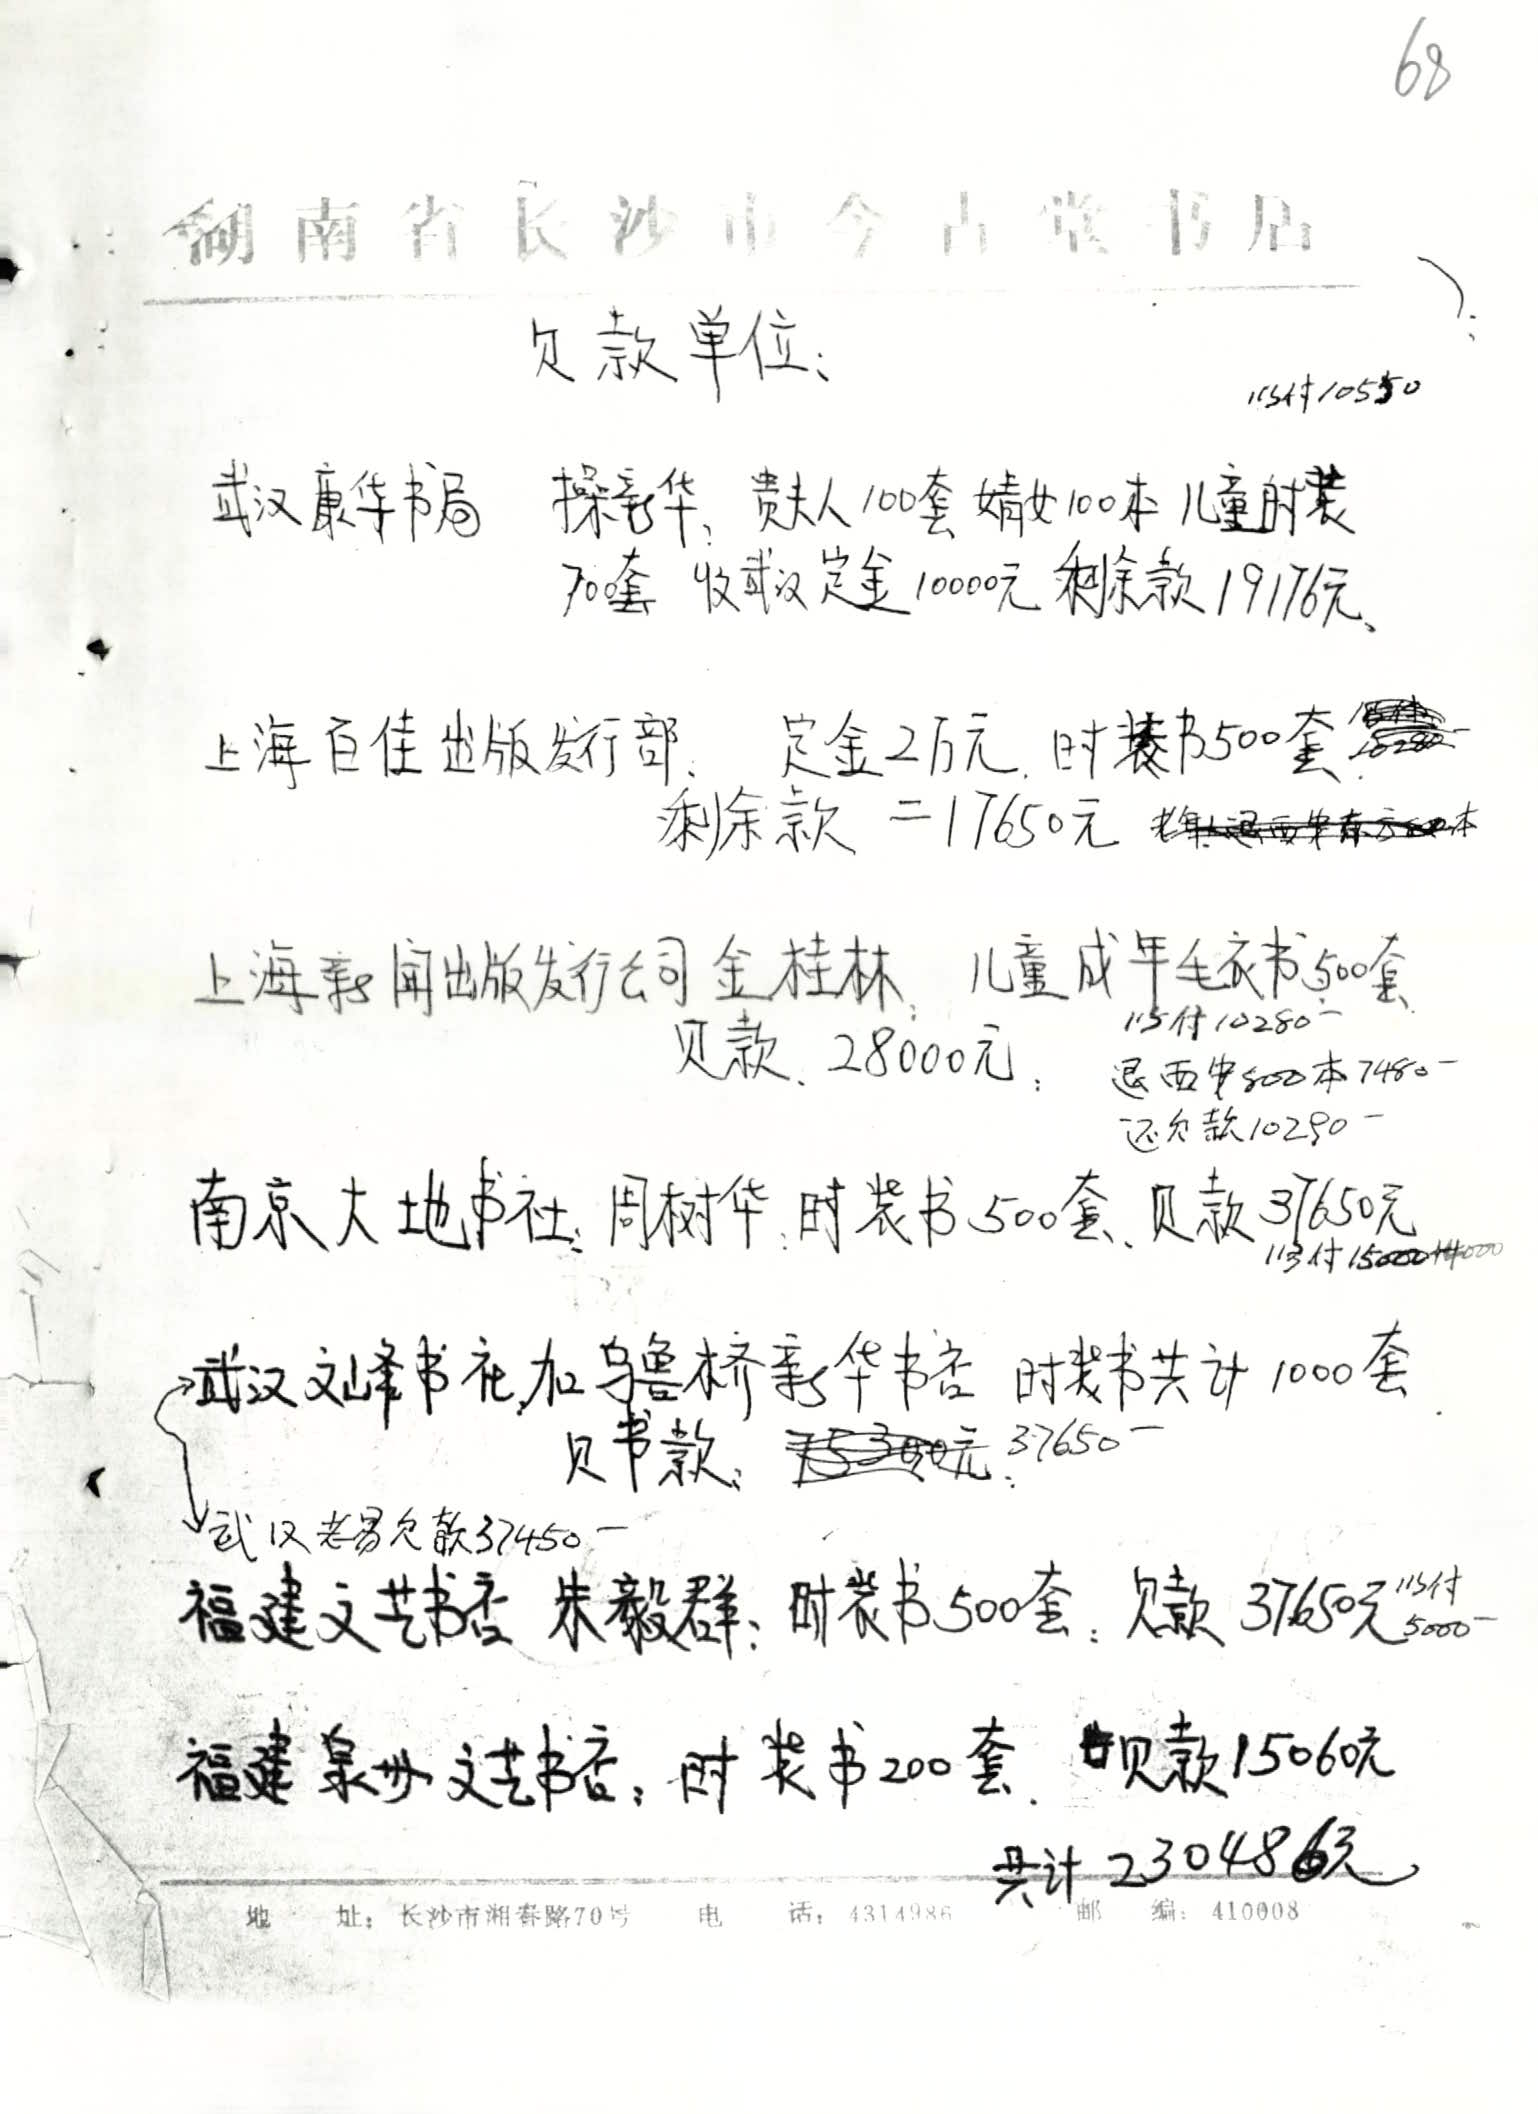 68
湖南省长沙市今古堂书店
欠款单位：
113付10550
武汉康华书局 操新华：贵夫人100套 婧女100本 儿童时装
700套 收武汉定金10000元 剩余款19176元、
上海百佳出版发行部： 定金2万元、时装书500套
剩余款 = 17650元
上海新闻出版发行公司 金桂林： 儿童成年毛衣书500套
欠款、28000元；
113付10280—
退西安800本7480—
还欠款10290—
南京大地书社：周树华：时装书500套、欠款37650元
113付15000
武汉文峰书社，加乌鲁木齐新华书店 时装书共计1000套
欠书款： 75300元 37650—
武汉老易欠款37450—
福建文艺书店 朱毅群：时装书500套：欠款37650元 113付
5000—
福建泉州文艺书店：时装书200套、欠款15060元
共计230486元
地 址：长沙市湘春路70号 电 话：4314986 邮 编：410008